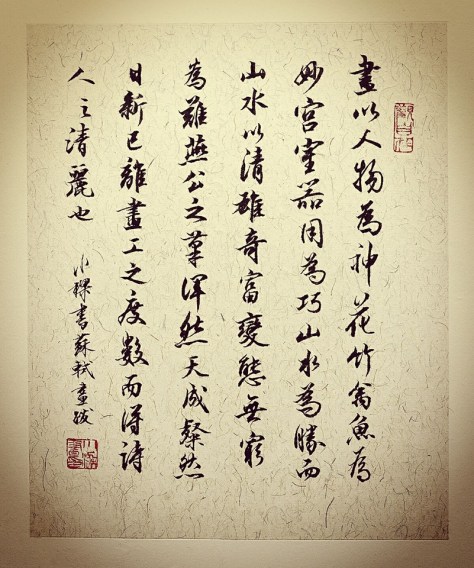 畫以人物為神花竹禽魚為
妙宮室器用為巧山水為勝而
山水以清雄奇富變態無窮
為難燕公之筆渾然天成粲然
日新已離畫工之度數而得詩
人之清麗也
書蘇軾畫跋